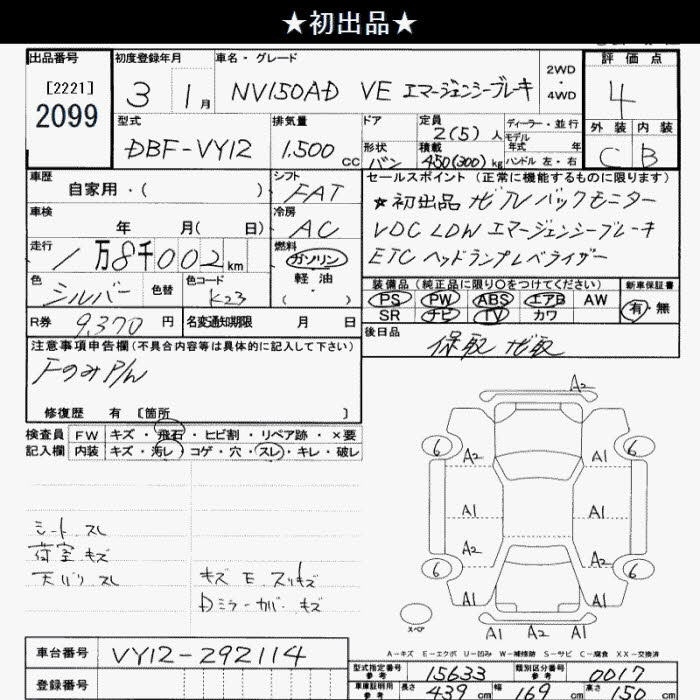 ★初出品★
出品番号 初度登録年月 車名・グレード 2WD・4WD 評価点
[2221]
2099
3 1月 NV150AD VE エマージェンシーブレーキ 4
型式 排気量 ドア 定員 2(5)人 ディーラー・並行 外装 内装
モデル年式 年
DBF-VY12 1,500cc 形状 バン 積載 450(300)kg ハンドル 左・右 C B
車歴 シフト セールスポイント(正常に機能するものに限ります)
自家用・( ) FAT ★初出品 ナビTVバックモニター
車検 冷房 VDC LDW エマージェンシーブレーキ
年 月( 日) AC ETC ヘッドランプレベライザー
走行 燃料
1万8千002km ガソリン
軽油
・
( )
色 色替 色コード 装備品(純正品に限り○をつけてください) 新車保証書
シルバー K23 PS PW ABS エアB AW 有・無
SR ナビ TV カワ
R券 9,370円 名変通知期限 月 日 後日品
保取 ナビ取
注意事項申告欄(不具合内容等は具体的に記入して下さい)
FのみP/W
修復歴 有 [箇所 ]
検査員記入欄 FW キズ・飛石・ヒビ割・リペア跡・×要
内装 キズ・汚レ・コゲ・穴・スレ・キレ・破レ
A2
6 A2 A1 6
A1 A1
A2 A1
6 6
A1 A1
A1 A2 A1
スペア
シート スレ
荷室 キズ
天バリ スレ
キズ E スリキズ
Dミラーカバー キズ
A-キズ E-エクボ U-凹み W-補修跡 S-サビ C-腐食 XX-交換済
車台番号 VY12-292114
登録番号
型式指定番号 参考 15633 類別区分番号 参考 0017
車庫証明用 参考 長さ 439cm 幅 169cm 高さ 150cm